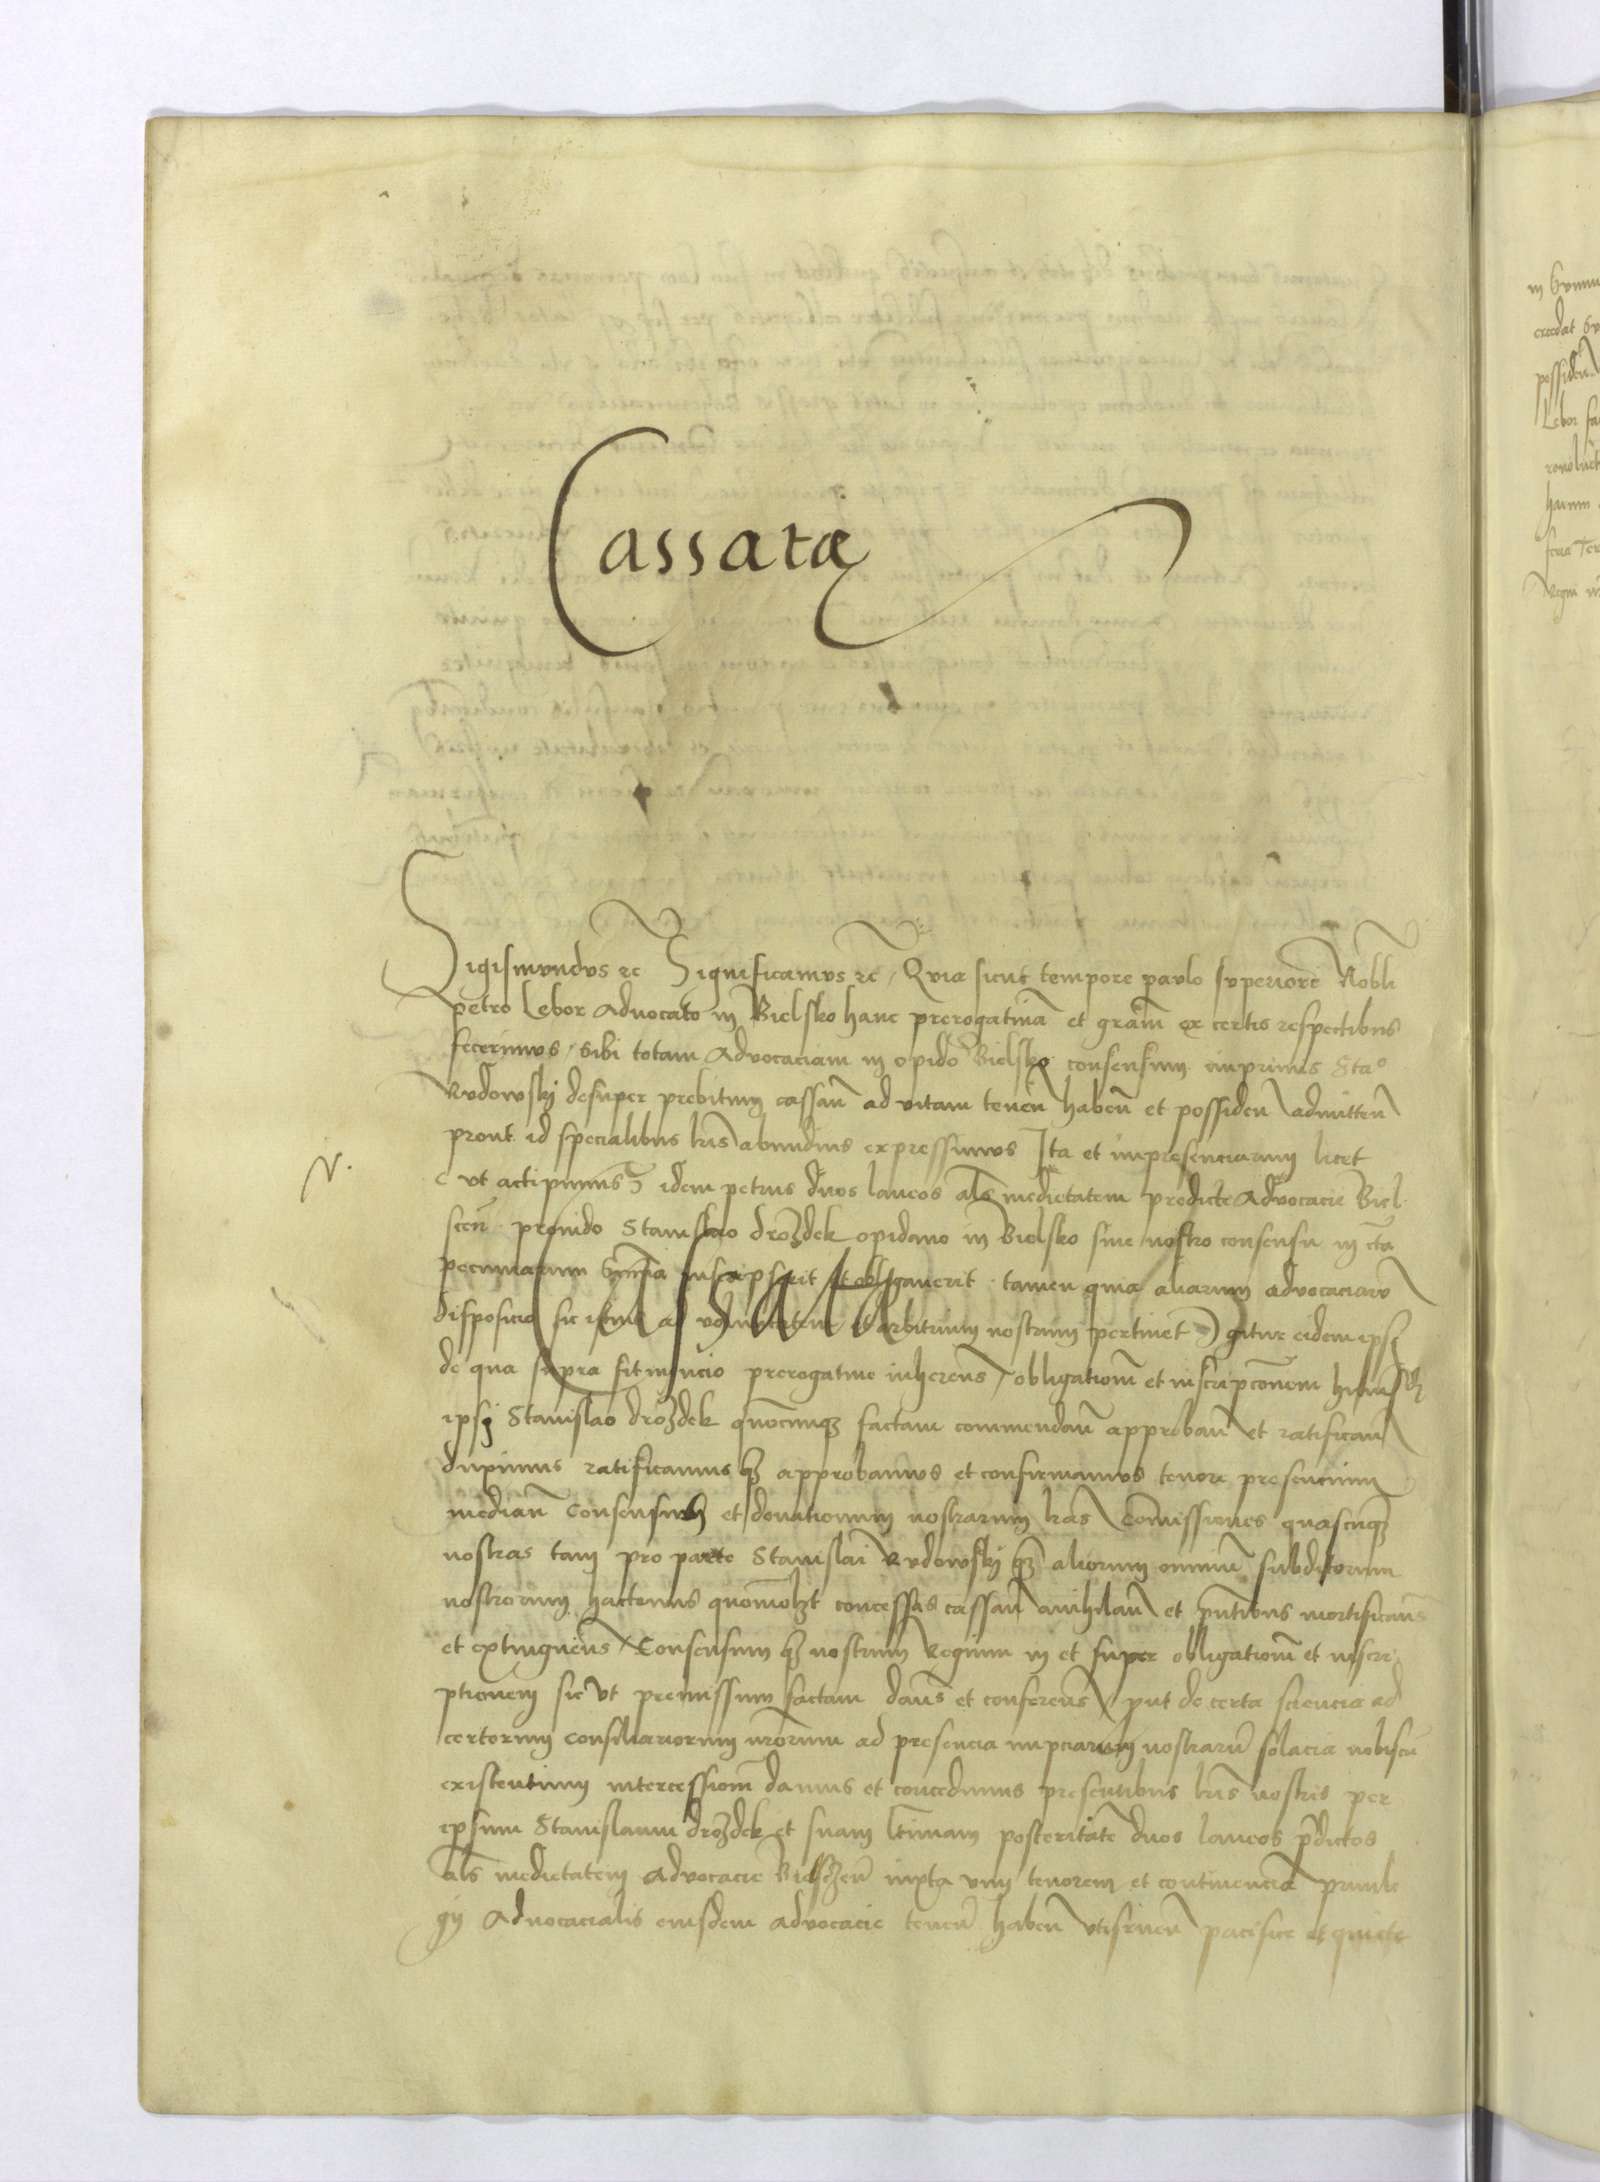 Cassatæ
Sigismundus etc Significamus etc Quia sicut tempore paulo superiore Nobli
petro Lebor Advocato in Bielsko hanc prerogativa et gram ex certis respectibus
fecerimus, Sibi totam Advocaciam in opido Bielsko consensum inprimis Stao
Rudowskj desuper prebitum cassan ad vitam tenen haben et possiden admitten
prout id specialibus lris abundius expressimus Ita et inpresenciarum licet
N.
ut accipimus idem petrus duos laneos als medietatem predicte Advocacie Biel
scen provido Stanislao drozdek opidano in Bielsko sine nostro consensu in cta
pecuniarum summa inscripserit et obligaverit tamen quia aliarum advocaciaru
disposicio sic istius ad voluntatem et arbitrium nostrum pertinet Igitur eidem ipsi
de qua supra fit mencio prerogative inherens, obligationem et inscripconem
ipsi Stanislao drozdek quocunque factam commendan approban et ratifican
duximus ratificamusque approbamus et confirmamus tenore presencium
median Consensuum et donationum nostrarum lras Comissiones quascunque
nostras tam pro parte Stanislai Rudowskj quam aliorum omnium subditorum
nostrorum hactenus quomolibet concessas cassan anihilan et pntibus mortifican
et extinguens, Consensumque nostrum Regium in et super obligationem et inscri
ptionem sic ut premissum factam dans et conferens, put de certa sciencia ad
certorum Consiliariorum nrorum ad presencia nupciarum nostraru solacia nobiscu
existentium intercessionem damus et concedimus presentibus lris nostris per
ipsum Stanislaum drozdek et suam ltimam posteritate duos laneos pdictos
als medietatem Advocacie Bielscen iuxta vim tenorem et continencia privile
gij Advocacialis eiusdem advocacie tenen haben utifruen pacifice et quiete